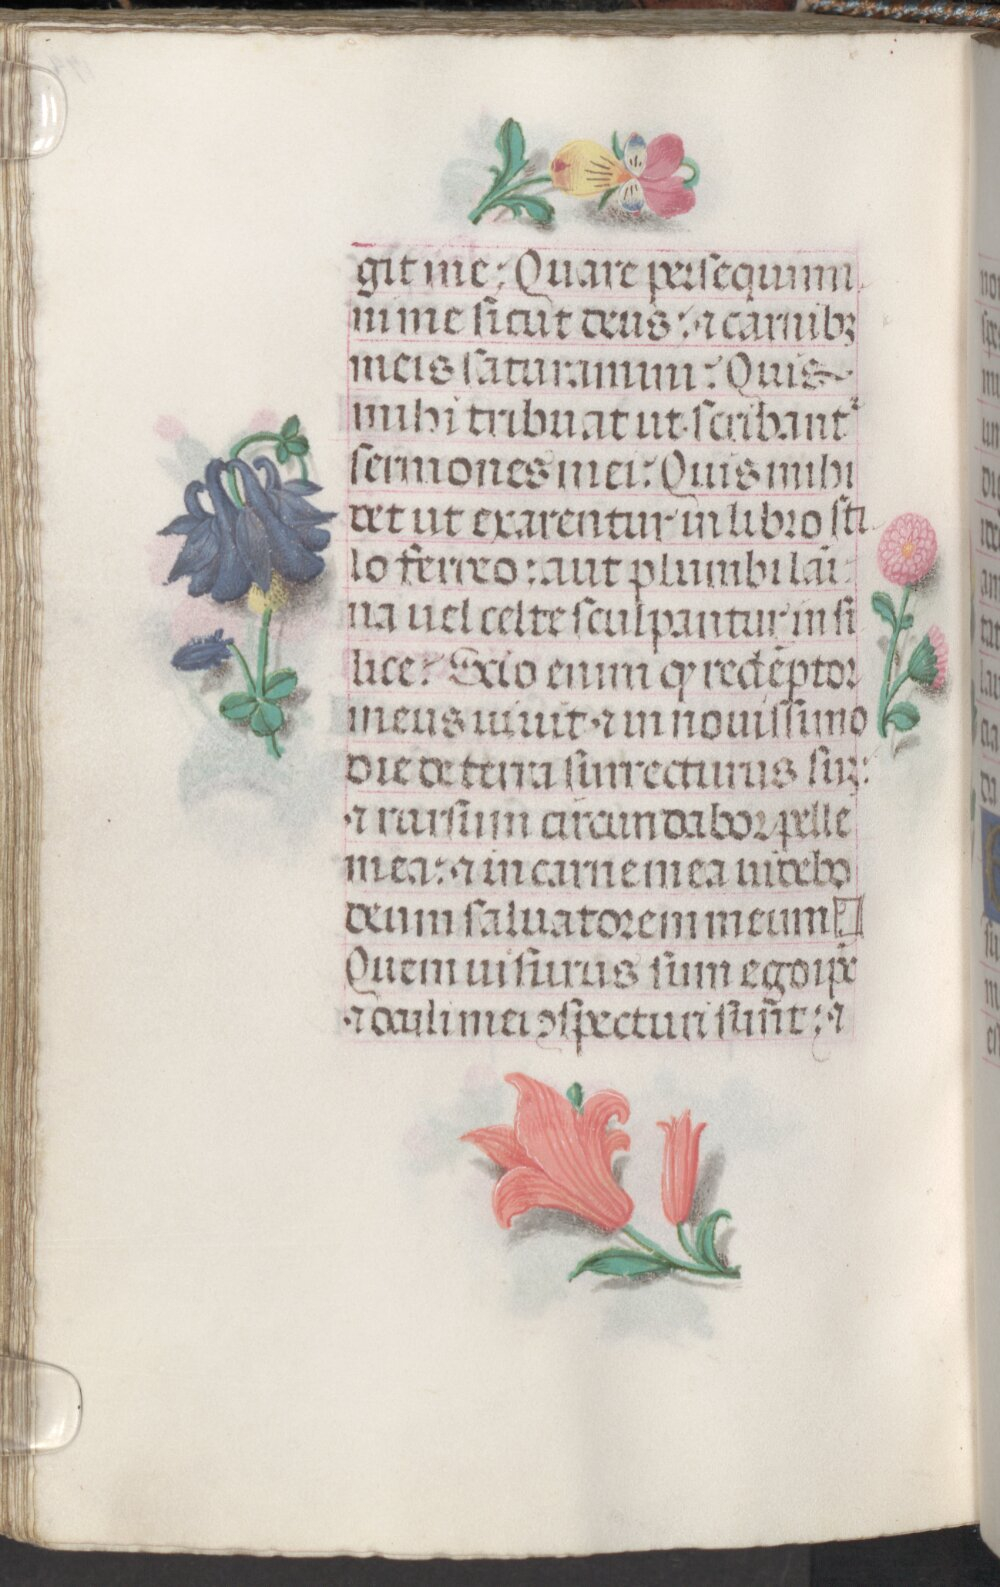 git me: Quare persequimi
ni me sicut deus: ⁊ carnibꝫ
meis saturamini: Quis
mihi tribuat ut scribantᷣ
sermones mei: Quis mihi
det ut exarentur in libro sti
lo ferreo: aut plumbi lāi
na uel celte sculpantur in si
lice: Scio enim ꝙ redēptor
meus uiuit ⁊ in nouissimo
die de terra surrecturus sum:
⁊ rursum circundabor pelle
mea: ⁊ in carne mea uidebo
deum saluatorem meum
Quem uisurus sum ego ipē
⁊ oculi mei ɔspecturi sūnt: ⁊